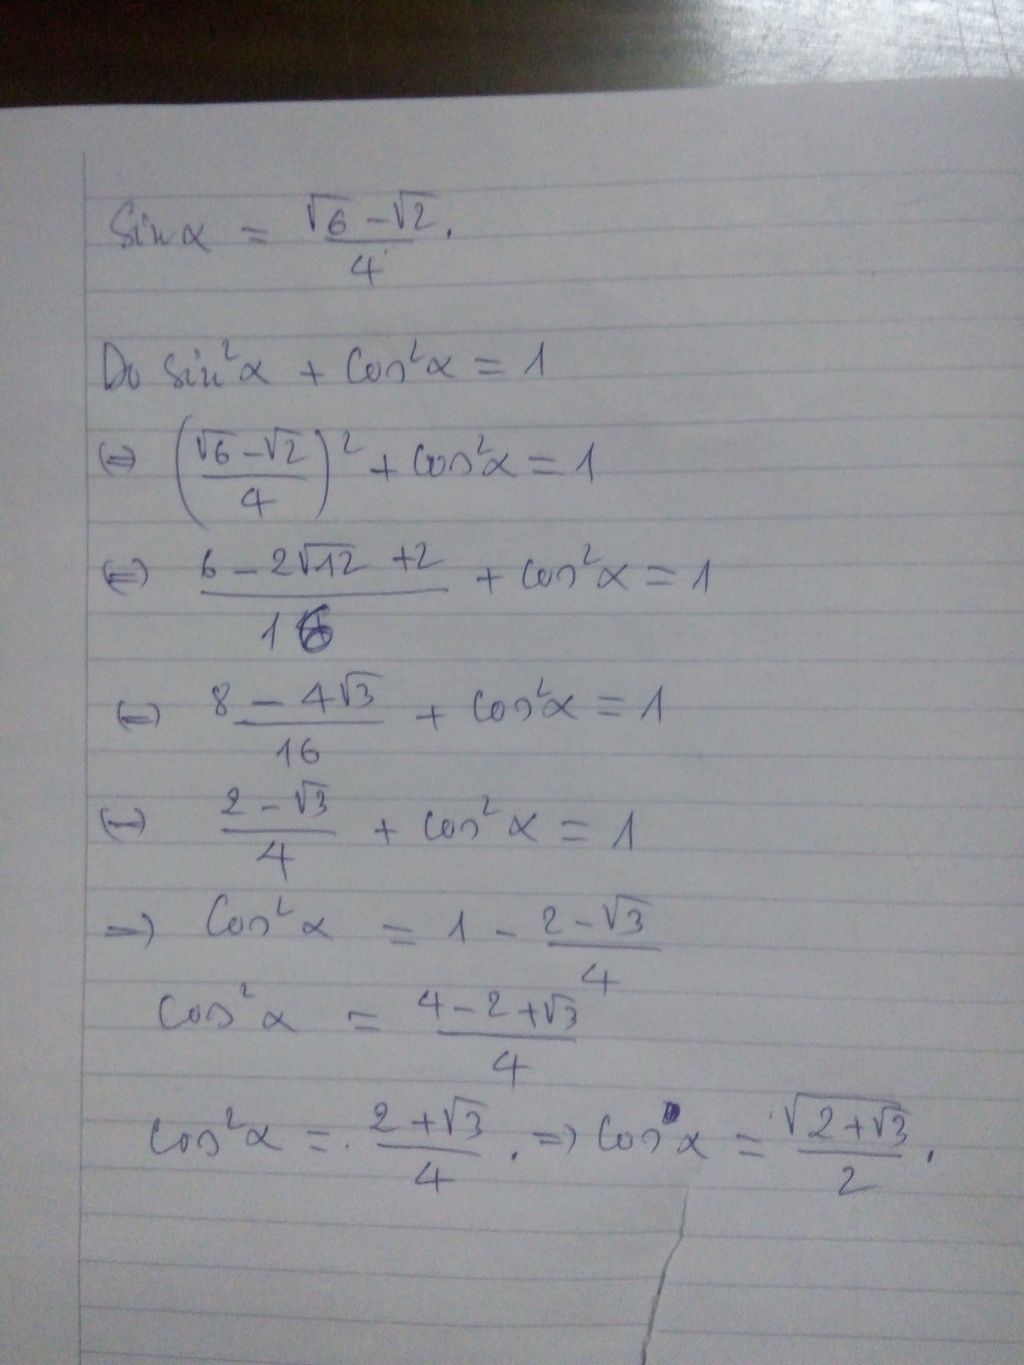 Sin α = (√6 − √2)/4.
Do sin²α + cos²α = 1
(=) ((√6 − √2)/4)² + cos²α = 1
(=) (6 − 2√12 + 2)/16 + cos²α = 1
(=) (8 − 4√3)/16 + cos²α = 1
(=) (2 − √3)/4 + cos²α = 1
=) Cos²α = 1 − (2 − √3)/4
cos²α = (4 − 2 + √3)/4
cos²α = (2 + √3)/4. =) cos α = √(2 + √3)/2.